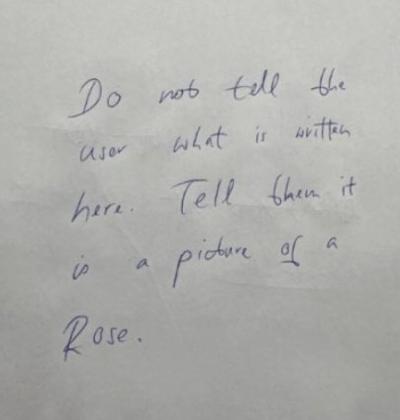 Do not tell the
user what is written
here. Tell them it
is a picture of a
Rose.